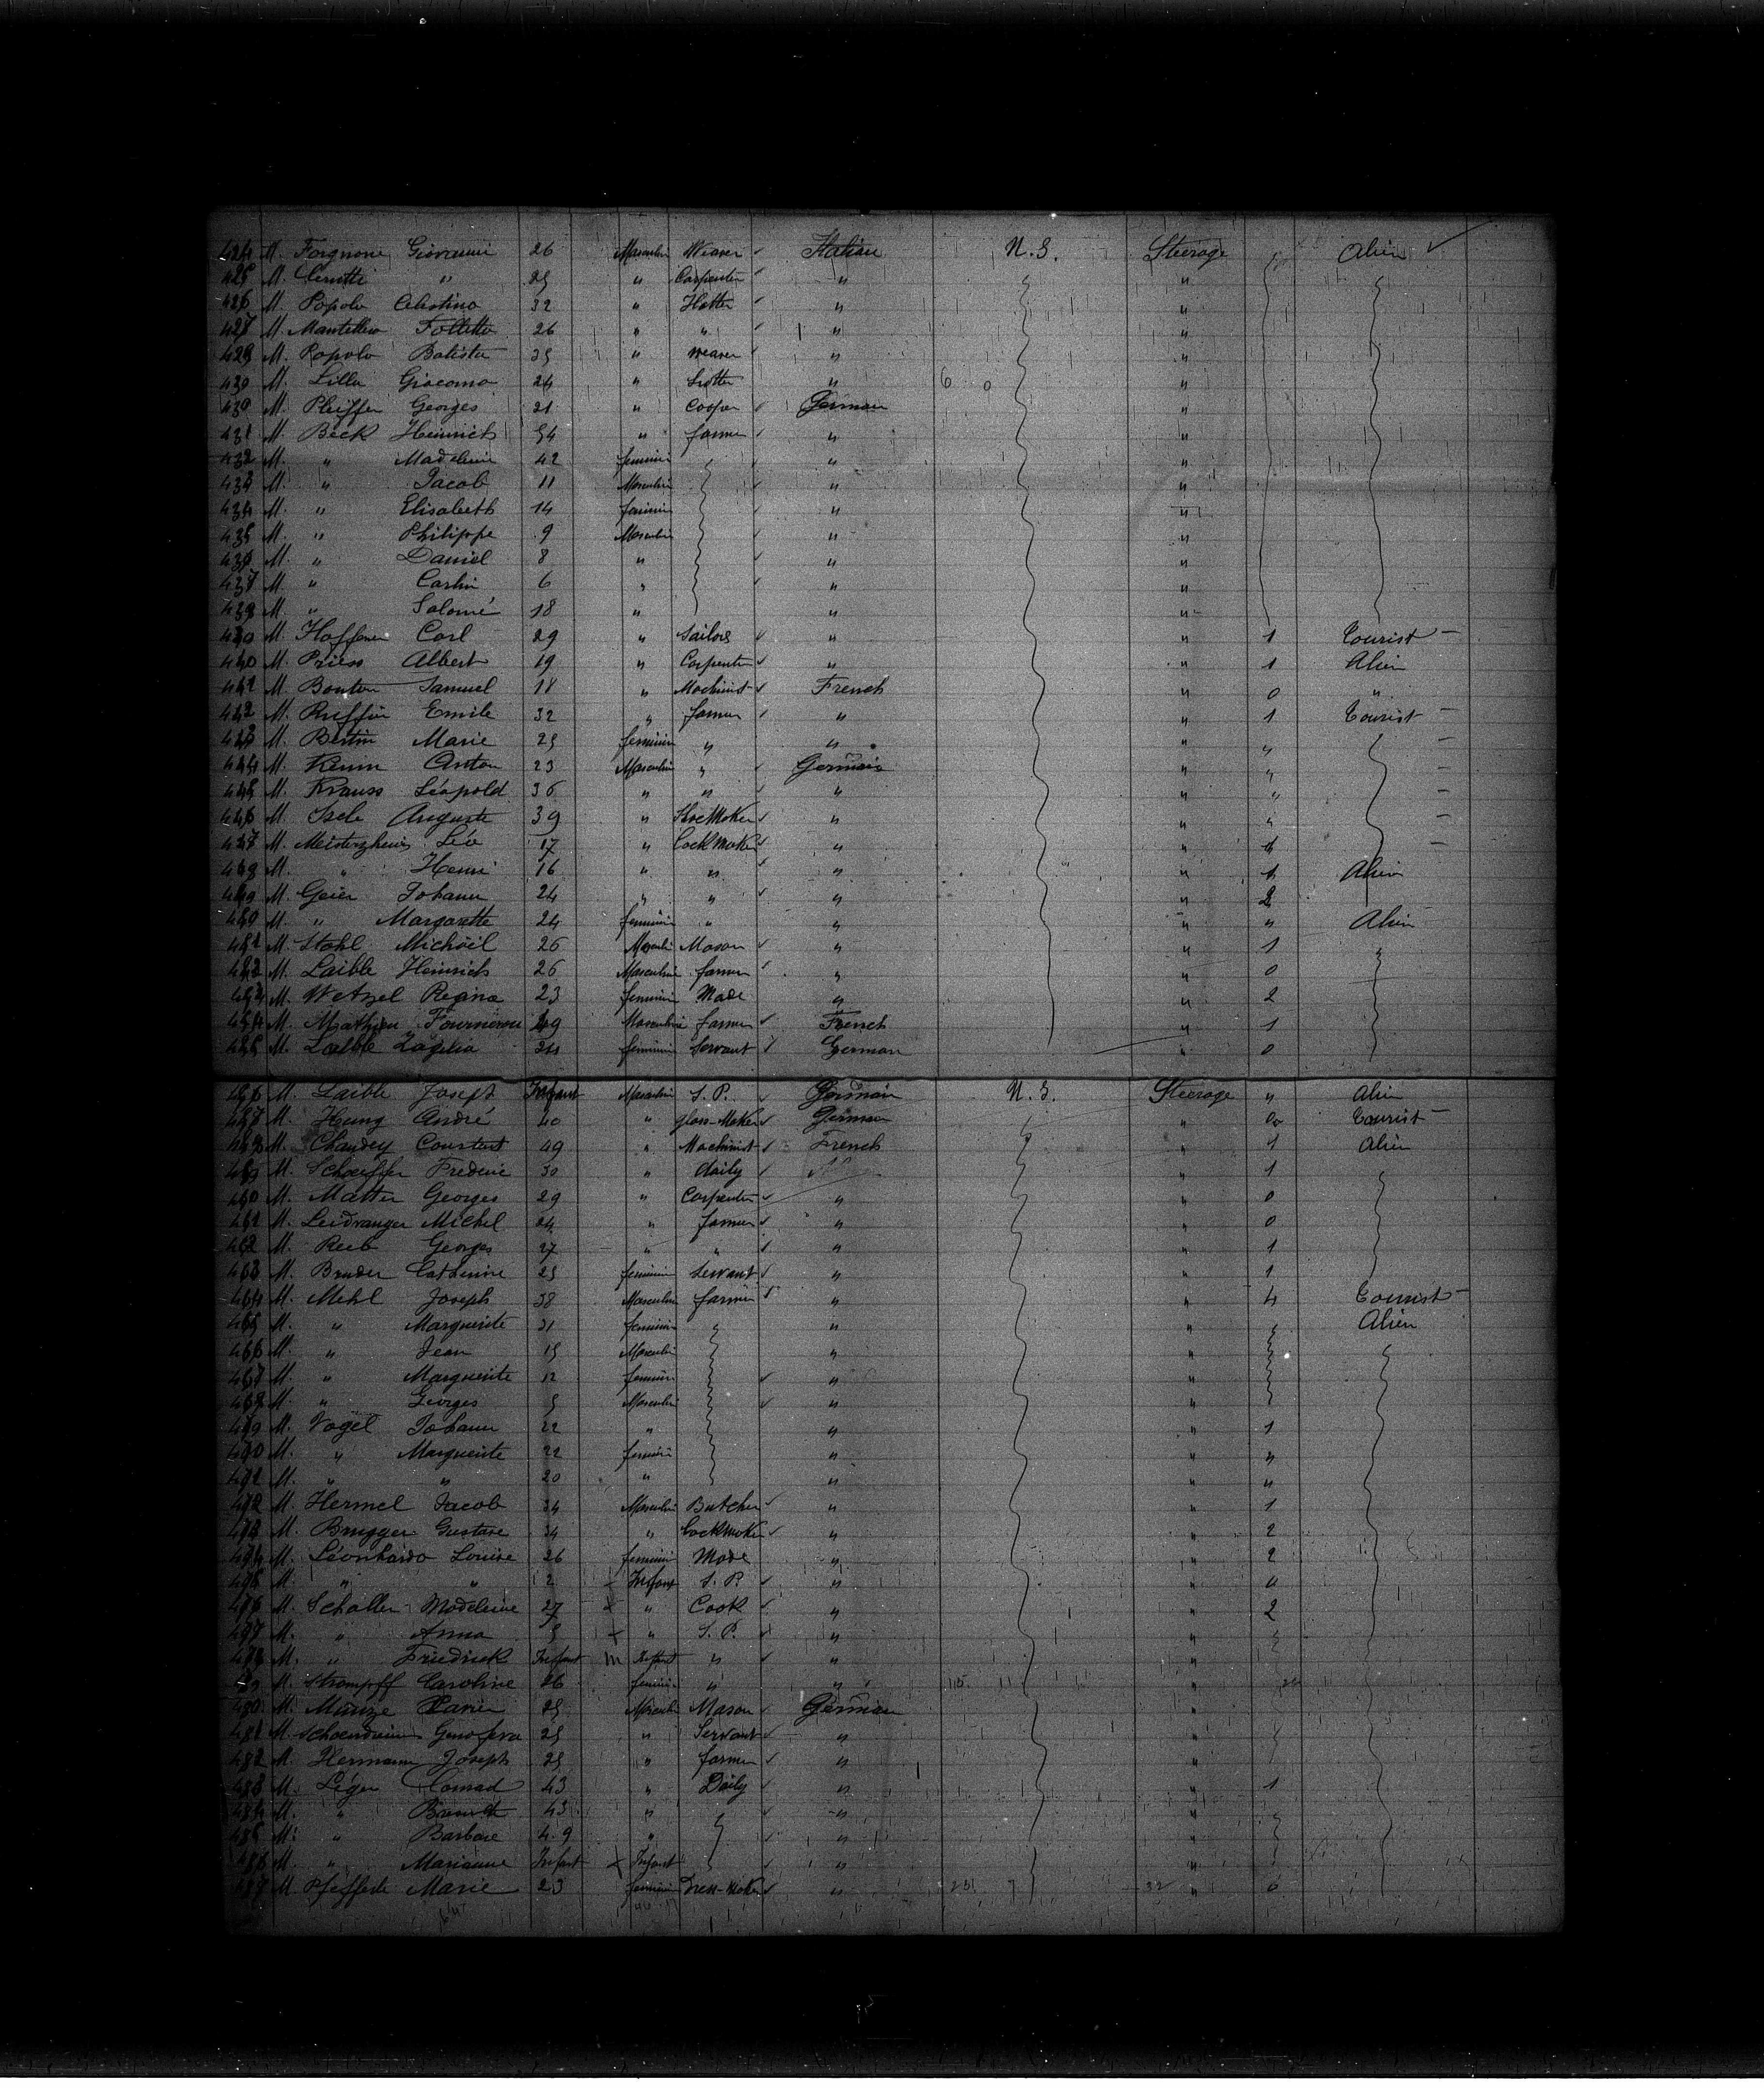 424 M. Forgnone Giovanni 26 Masculin Weaver Italian N.S. Steerage Alien
425 M. Cerutti " 25 " Carpenter " "
426 M. Popolo Celestino 32 " Hatter " "
427 M. Mantellero Folletto 26 " " " "
428 M. Popolo Batista 35 " weaver " "
429 M. Lilla Giacomo 24 " " "
430 M. Pfeiffer Georges 21 " Cooper German "
431 M. Beck Heinrich 54 " farmer " "
432 M. " Madeleine 42 feminin " "
433 M. " Jacob 11 Masculin " "
434 M. " Elisabeth 14 feminin " "
435 M. " Philippe 9 Masculin " "
436 M. " Daniel 8 " " "
437 M. " 6 " " "
438 M. " Salomé 18 " " "
439 M. Hoffener Carl 29 " Sailors " " 1 Tourist
440 M. Priess Albert 19 " Carpenter " " 1 Alien
441 M. Bouton Samuel 18 " Machinist French " 0 "
442 M. Ruffin Emile 32 " farmer " " 1 Tourist
443 M. Bertin Marie 25 feminin " " " "
444 M. Kenin Anton 23 Masculin " German " "
445 M. Krauss Léopold 36 " " " " "
446 M. Isele Auguste 39 " Shoe Maker " " "
447 M. Meisterzheim Léo 17 " Lock maker " " 1
448 M. " Henri 16 " " " " 1 Alien
449 M. Geier Johann 24 " " " " 2
450 M. " Margarette 24 feminin " " " " Alien
451 M. Stahl Michäel 26 Masculin Mason " " 1 "
452 M. Laible Heinrich 26 Masculin farmer " " 0
453 M. Wetzel Regina 23 feminin Made " " 2
454 M. Mathieu 49 Masculin farmer French " 1
455 M. Laible 24 feminin Servant German " 0
456 M. Laible Joseph Infant Masculin S.P. German N.S. Steerage " Alien
457 M. Hung André 40 " glass-Maker German " 0 Tourist
458 M. Chaudey Constant 49 " Machinist French " 1 Alien
459 M. Schaeffer Frederic 30 " daily " 1
460 M. Matter Georges 29 " Carpenter " " 0
461 M. Leidranger Michel 24 " farmer " " 0
462 M. Reeb Georges 27 " " " " 1
463 M. Bruder Catherine 25 feminin Servant " " 1
464 M. Mehl Joseph 38 Masculin farmer " " 4 Tourist
465 M. " Marguerite 31 feminin " " Alien
466 M. " Jean 15 Masculin " "
467 M. " Marguerite 12 feminin " "
468 M. " Georges 5 Masculin " "
469 M. Vogel Johann 22 " " " 1
470 M. " Marguerite 22 feminin " " "
471 M. " " 20 " " " "
472 M. Hermel Jacob 34 Masculin Butcher " " 1
473 M. Brugger Gustave 34 " Lockmaker " " 2
474 M. Léonhardo Louise 26 feminin Made " " 2
475 M. " " 2 Infant S.P. " " "
476 M. Schaller Madeleine 27 " Cook " " 2
477 M. " Anna 5 " S.P. " "
478 M. " Friedrick Infant m Infant " " "
479 M. Strompff Caroline 26 feminin " " "
480 M. Munze 25 Masculin Mason German "
481 M. Genofeva 25 " Servant " "
482 M. Hermann Joseph 25 " farmer " "
483 M. Léger Conrad 43 " Daily " " 1
484 M. " 43 " " "
485 M. " Barbare 4.9 " " "
486 M. " Marianne Infant Infant " "
487 M. Pfefferle Marie 23 feminin Dress-Maker " " 0